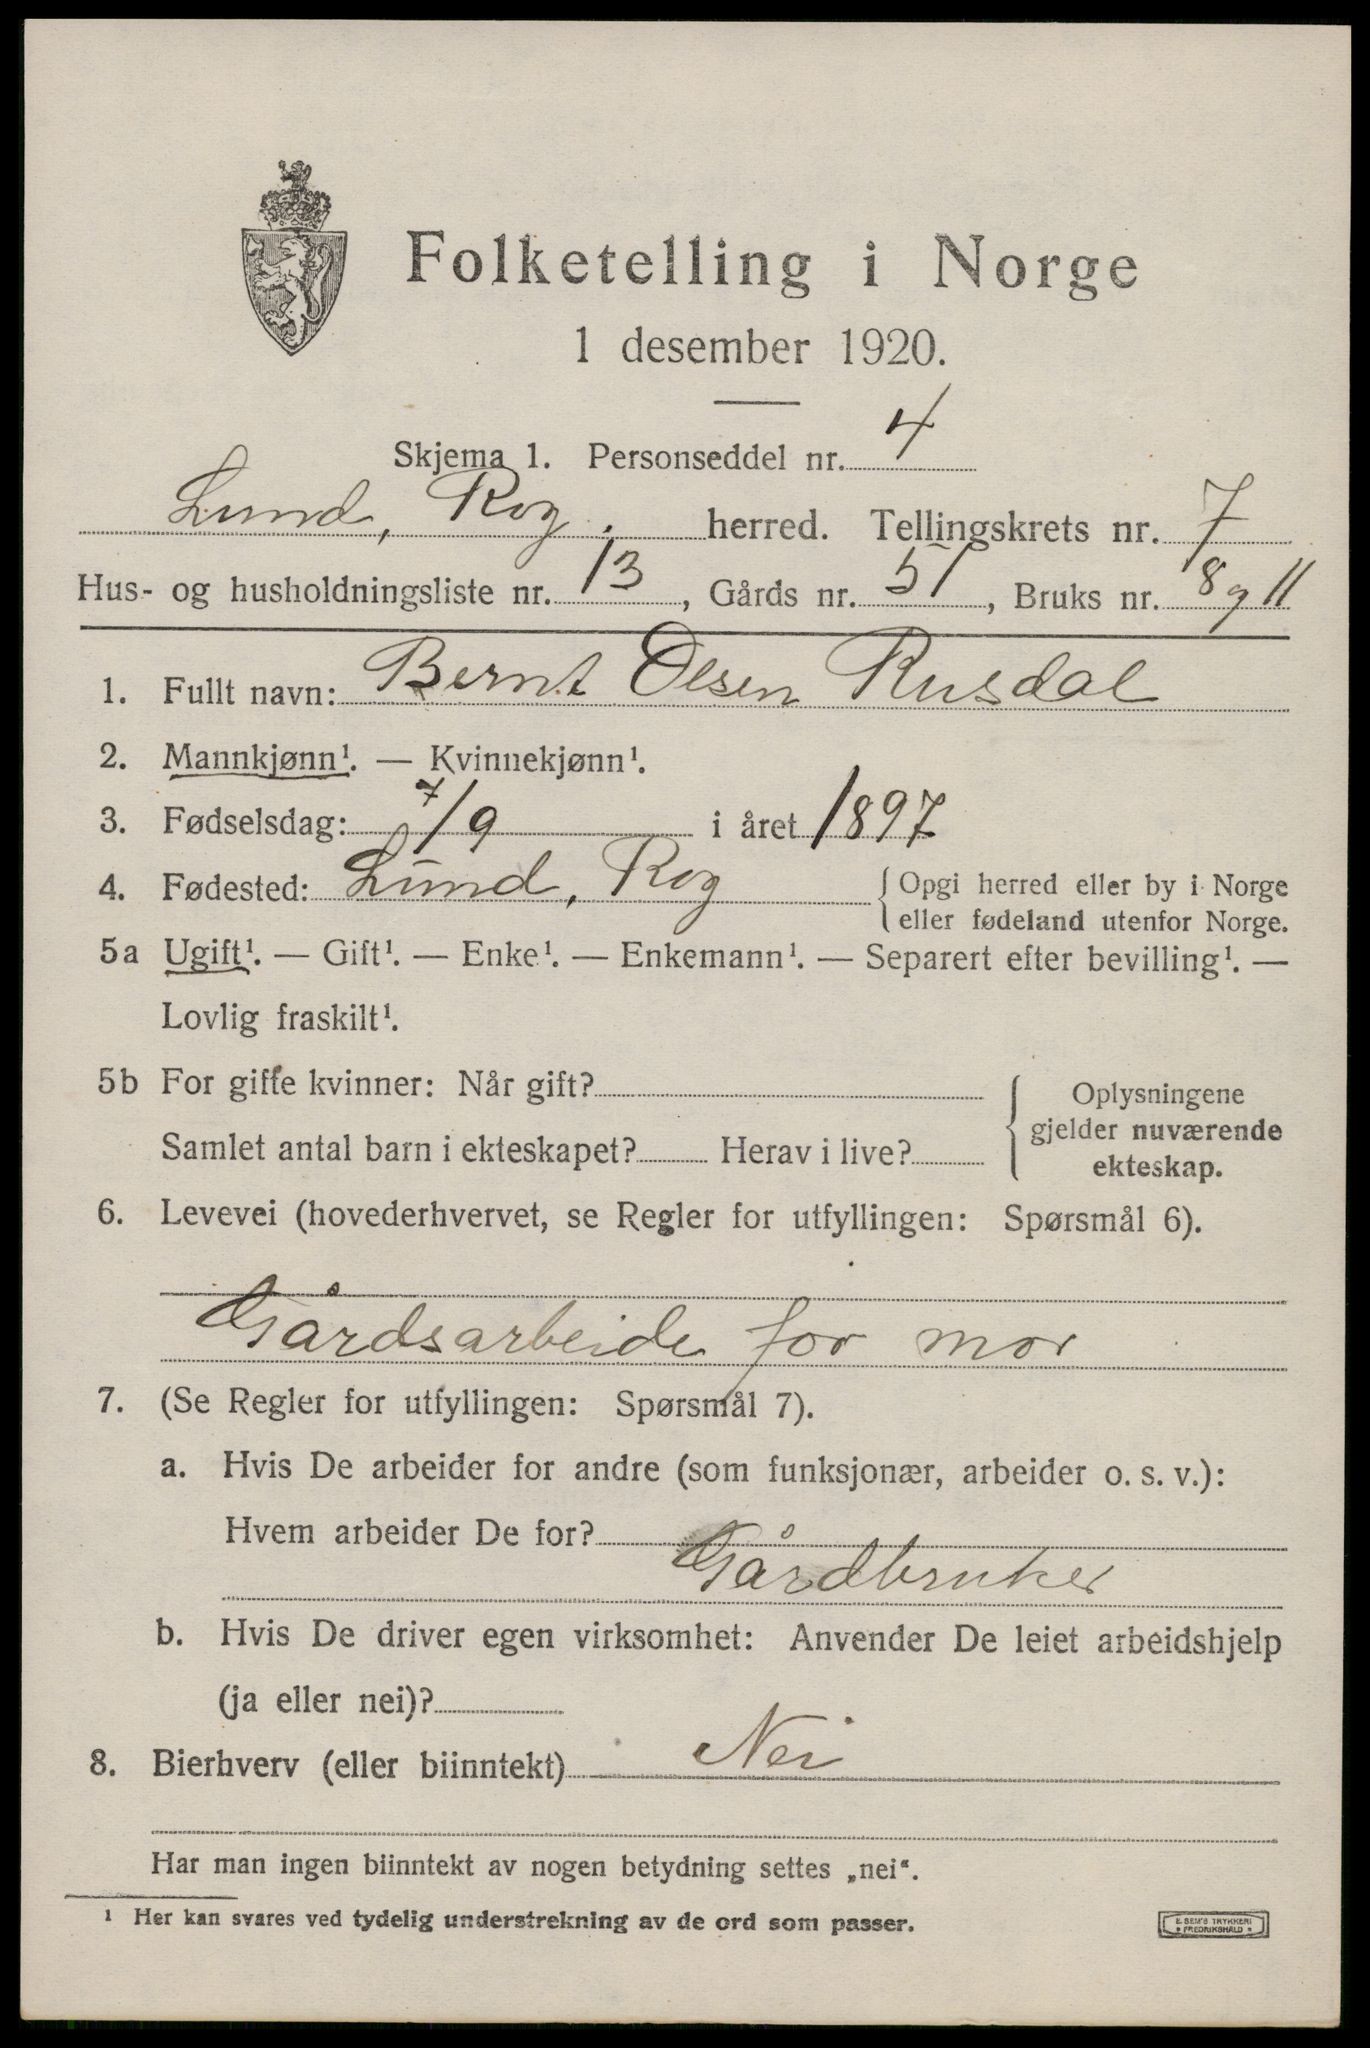 Folketelling i Norge
1 desember 1920.
Skjema 1. Personseddel nr. 4
Lund, Rog. herred. Tellingskrets nr. 7
Hus- og husholdningsliste nr. 13, Gårds nr. 51, Bruks nr. 8 og 11
1. Fullt navn: Bernt Olsen Rusdal
2. Mannkjønn¹. — Kvinnekjønn¹.
3. Fødselsdag: 7/9 i året 1897
4. Fødested: Lund, Rog { Opgi herred eller by i Norge
eller fødeland utenfor Norge.
5a Ugift¹. — Gift¹. — Enke¹. — Enkemann¹. — Separert efter bevilling¹. —
Lovlig fraskilt¹.
5b For gifte kvinner: Når gift?
Samlet antal barn i ekteskapet? Herav i live?
{ Oplysningene
gjelder nuværende
ekteskap.
6. Levevei (hovederhvervet, se Regler for utfyllingen: Spørsmål 6).
Gårdsarbeide for mor
7. (Se Regler for utfyllingen: Spørsmål 7).
a. Hvis De arbeider for andre (som funksjonær, arbeider o. s. v.):
Hvem arbeider De for?
Gårdbruker
b. Hvis De driver egen virksomhet: Anvender De leiet arbeidshjelp
(ja eller nei)?
8. Bierhverv (eller biinntekt) Nei
Har man ingen biinntekt av nogen betydning settes „nei“.
¹ Her kan svares ved tydelig understrekning av de ord som passer.
E. SEM'S TRYKKERI
* FREDRIKSHALD *